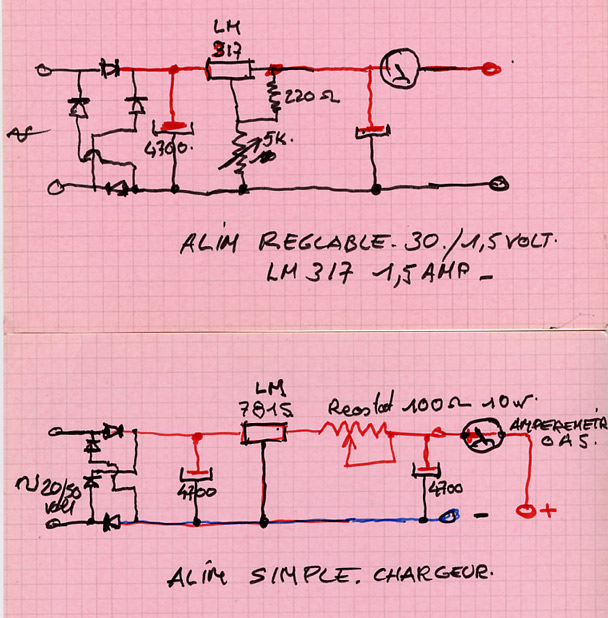 LM
317
220 Ω
4700.
5K.
ALIM REGLABLE. 30./1,5 VOLT.
LM 317 1,5 AMP _
LM
7815
Reostat 100Ω 10W.
AMPEREMETR
0 A 5.
20/30
volt
4700
4700
-
+
ALIM SIMPLE. CHARGEUR.